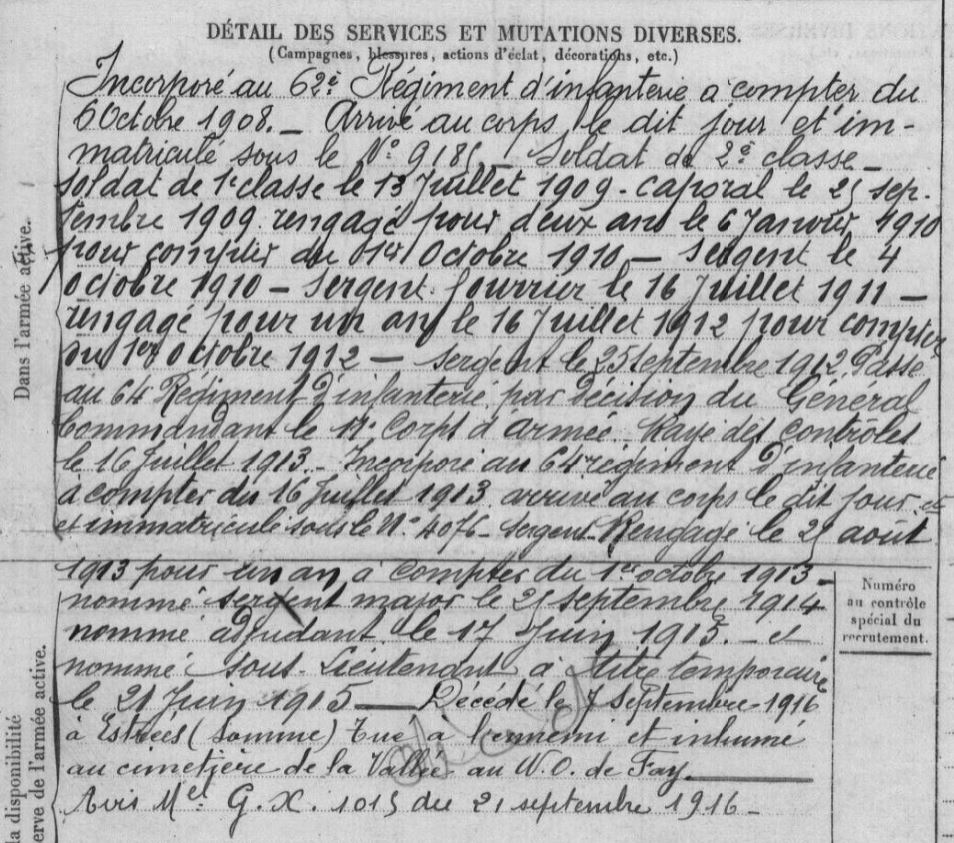 DÉTAIL DES SERVICES ET MUTATIONS DIVERSES.
(Campagnes, blessures, actions d'éclat, décorations, etc.)
Incorporé au 62è Régiment d'infanterie à compter du
6 Octobre 1908. — Arrivé au corps le dit jour et im-
matriculé sous le N° 9185 — Soldat de 2è classe —
soldat de 1e classe le 13 Juillet 1909 - caporal le 25 sep-
tembre 1909 rengagé pour deux ans le 6 Janvier 1910
pour compter du 01er Octobre 1910 — sergent le 4
octobre 1910 — sergent fourrier le 16 Juillet 1911 —
rengagé pour un an le 16 Juillet 1912 pour compter
du 1er octobre 1912 — sergent le 25 septembre 1912. Passé
au 64 Régiment d'infanterie par décision du Général
Commandant le 11e Corps d'armée. Rayé des contrôles
le 16 Juillet 1913. - Incorporé au 64e régiment d'infanterie
à compter du 16 Juillet 1913 arrivé au corps le dit jour et
et immatriculé sous le N° 4076 - Sergent. Rengagé le 25 août
1913 pour un an à compter du 1er octobre 1913 -
nommé sergent major le 25 septembre 1914
nommé adjudant le 17 Juin 1915. - et
nommé sous-Lieutenant à titre temporaire
le 21 Juin 1915 — Décédé le 7 septembre 1916
à Estrées (Somme) Tué à l'ennemi et inhumé
au cimetière de la Vallée au N.O. de Fay
Avis Mel G.X. 1015 du 21 septembre 1916 -
Dans l'armée active.
la disponibilité
erve de l'armée active.
Numéro
au contrôle
spécial du
recrutement.